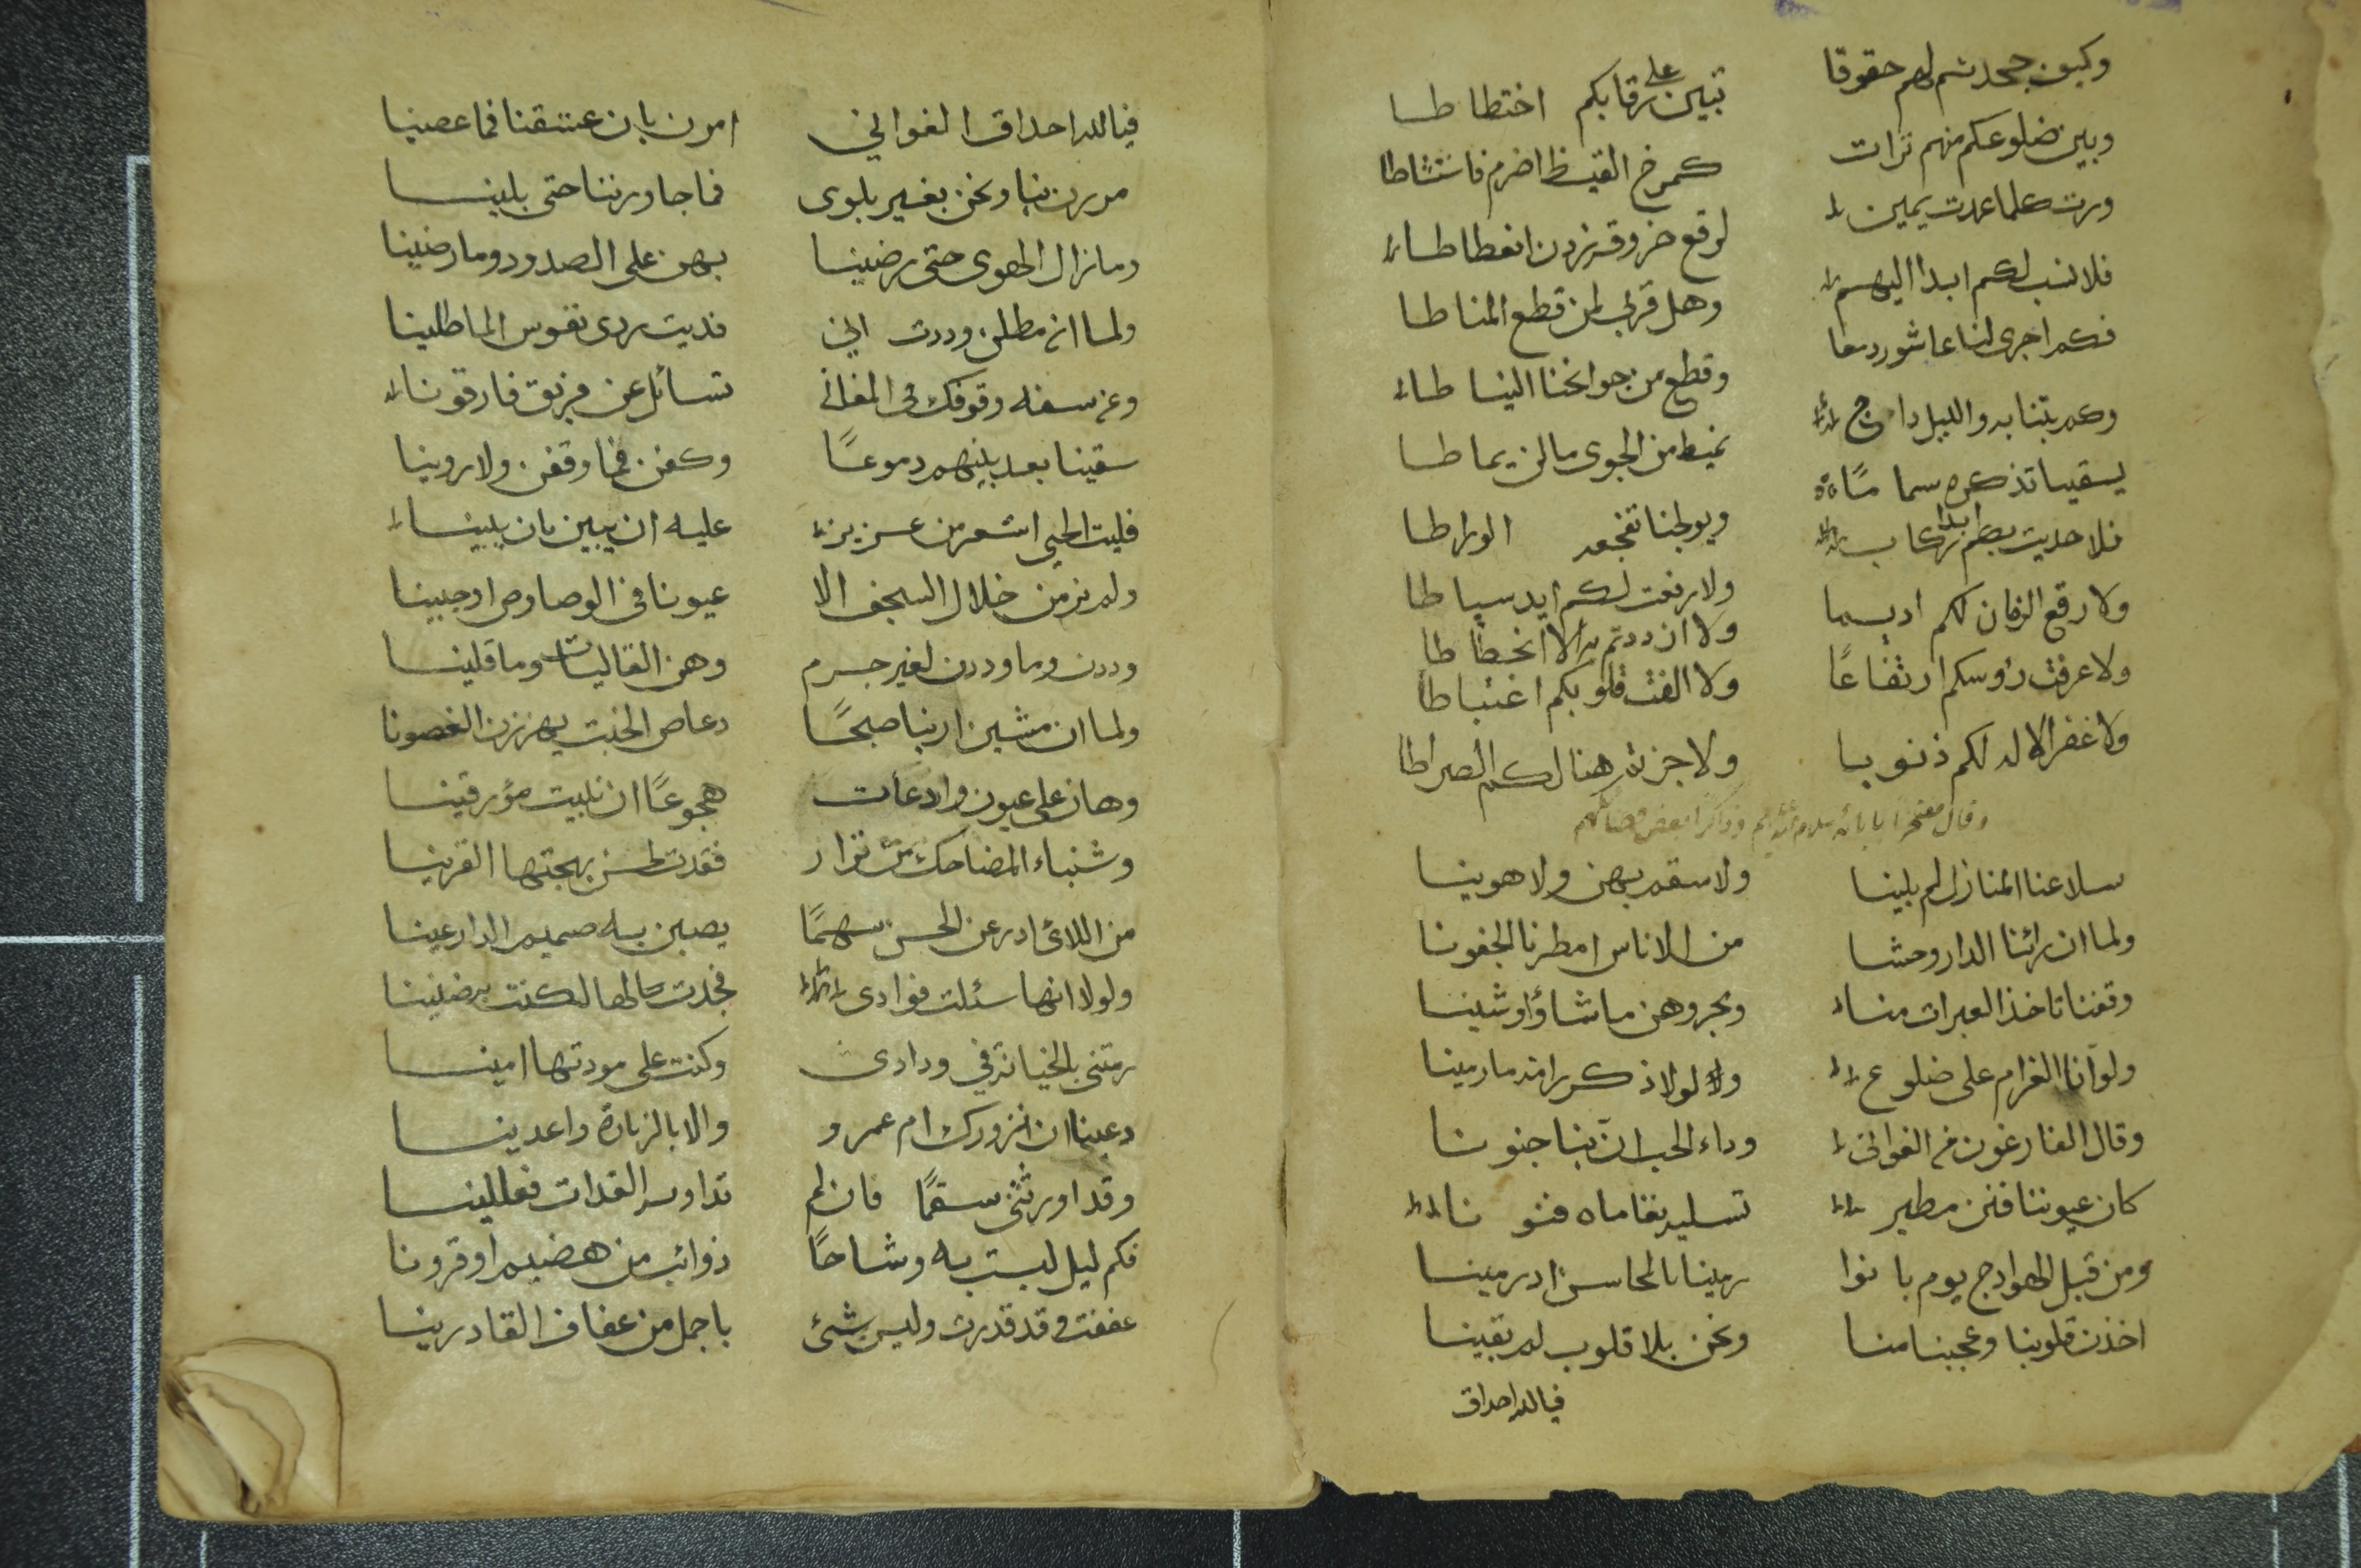 وكيف جحدتم لهم حقوقا تبين على رقابكم اختطاطا
وبين ضلوعكم منهم ترات كمرخ القيظ اضرم فاستشاطا
ورت كلما عمدت يمين لرقع خروقه زدن انعطاطا
فلا نسب لكم ابدا اليهم وهل قربى لمن قطع المناطا
فكم اجرى لنا عاشور دمعا وقطع من جوانحنا النياطا
وكم بتنا به والليل داج نميط من الجوى ما لن يماطا
يسقينا تذكره سماما ويولجنا تفجعه الوراطا
فلا حديت بكم ابدا ركاب ولا رفعت لكم ايد سياطا
ولا رفع الزمان لكم اديما ولا ازددتم به الا انحطاطا
ولا عرفت رؤسكم ارتفاعًا ولا الفت قلوبكم اغتباطا
ولا غفر الاله لكم ذنوبا ولا جزتم هنالكم الصراطا
وقال مفتخرا بابائه سلام الله عليهم وذاكرا بعض فضائلهم
سلا عنا المنازل لم بلينا ولا سقم بهن ولا هوينا
ولما ان رائنا الدار وحشا من الاناس امطرنا الجفونا
وقفنا تاخذ العبرات منا ونجروهن ما شاؤا وشينا
ولو آنا الغرام على ضلوع ولا لولا ذكر رامة ما رمينا
وقال الفارغون من الغوانى وداء الحب ان بنا جنونا
كان عيوننا فنن مطير تسليه نغاماه فنونا
ومن قبل الهوادج يوم بانوا رمينا بالمحاسن اد رمينا
اخذن قلوبنا وعجبنا منا ونحن بلا قلوب لم بقينا
فيالله احداق
فيالله احداق الغواني امرن بان عشقنا فما عصينا
مررن بنا ونحن بغير بلوى فما جاورننا حتى بلينا
وما زال الهوى حتى رضينا بهن على الصدود وما رضينا
ولما ان مطلن وددت اني فديت بردى نفوس الماطلينا
ومن سفه وقوفك في المغاني تسائل عن فريق فارقونا
سقينا بعد بينهم دموعًا وكفن فما وقفن ولا روينا
فليت الحي اشعر من عزيز عليه ان يبين بان يبينا
ولم نر من خلال السجف الا عيونا في الوصاوص او جبينا
وددن وما وددن لغير جرم وهن القاليات وما قلينا
ولما ان مشين اريننا صبحًا دعاص الخبت يهززن الغصونا
وهان على عيون وادعات هجوعًا ان نبيت مؤرقينا
وشنباء المضاحك من نزار فقدت لحسن بهجتها القرينا
من اللائى ادرعن الحسن سهمًا يصبن به صميم الدارعينا
ولولا انها سئلت فوادى فجدت به لها لكنت به ضنينا
رمتني بالخيانة في ودادى وكنت على مودتها امينا
دعينا ان نزورك ام عمرو والا بالزيارة واعدينا
وقد اورثتنى سقمًا فان لم تداويه الغدات فعللينا
فكم ليل لبست به وشاحًا ذوائب من هضيم او قرونا
عففت وقد قدرت وليس شئ باجمل من عفاف القادرينا